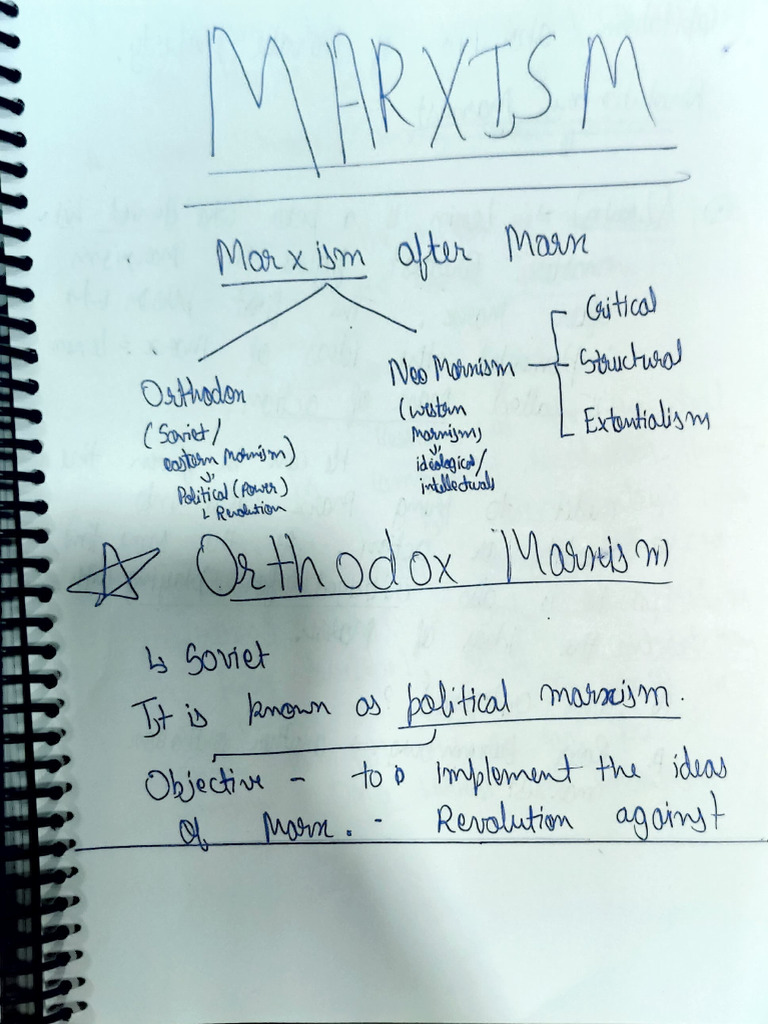 MARXISM
Marxism after Marx
Orthodox
(Soviet/
eastern Marxism)
Political (Power)
↳ Revolution
Neo Marxism
(western
Marxism)
ideological/
intellectuals
Critical
Structural
Extentialism
☆ Orthodox Marxism
↳ Soviet
It is known as political marxism.
Objective - to implement the ideas
of Marx. - Revolution against